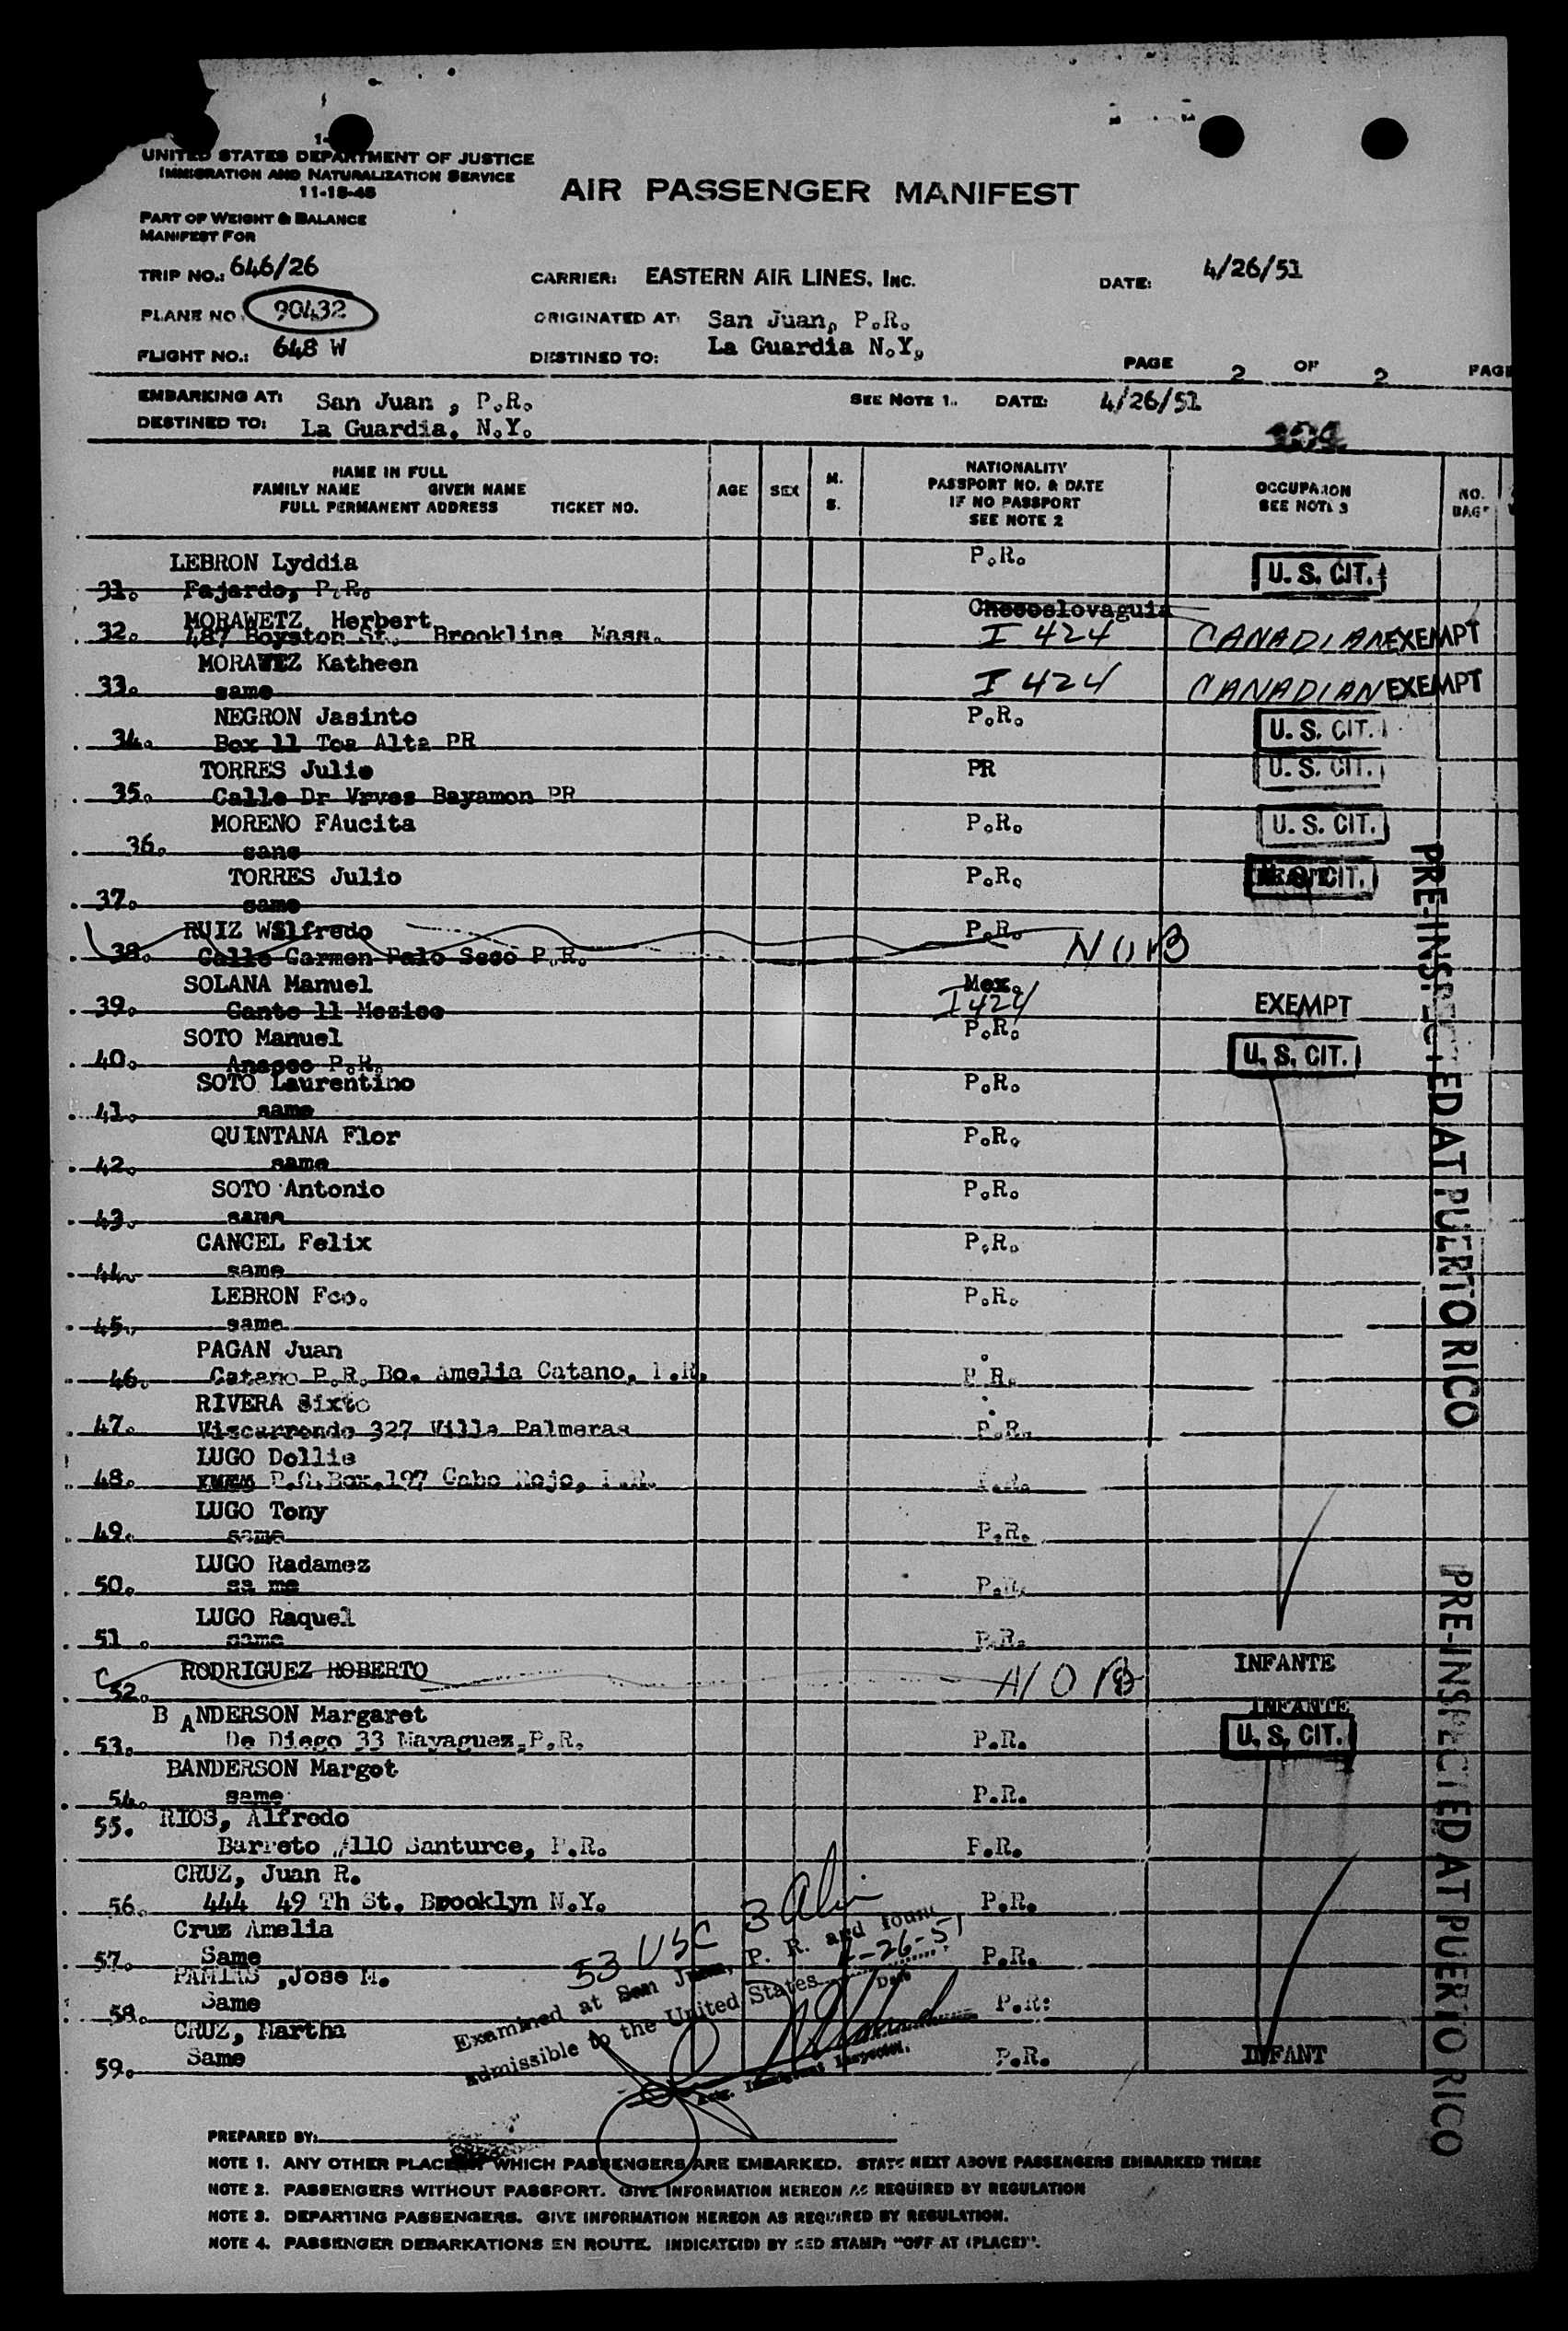 UNITED STATES DEPARTMENT OF JUSTICE
IMMIGRATION AND NATURALIZATION SERVICE
11-18-48
AIR PASSENGER MANIFEST
PART OF WEIGHT & BALANCE
MANIFEST FOR
TRIP NO.: 646/26
CARRIER: EASTERN AIR LINES, INC.
DATE: 4/26/51
PLANE NO. 90432
ORIGINATED AT: San Juan, P.R.
FLIGHT NO.: 648 W
DESTINED TO: La Guardia N.Y,
PAGE 2 OF 2 PAGE
EMBARKING AT: San Juan , P.R.
SEE NOTE 1. DATE: 4/26/51
DESTINED TO: La Guardia, N.Y.
NAME IN FULL
FAMILY NAME GIVEN NAME
FULL PERMANENT ADDRESS TICKET NO.
AGE SEX M. S.
NATIONALITY
PASSPORT NO. & DATE
IF NO PASSPORT
SEE NOTE 2
OCCUPATION
SEE NOTE 3
NO. BAGS
LEBRON Lyddia P.R. U. S. CIT.
31. Fajardo, P.R.
MORAWETZ Herbert Checoslovaguia
32. 487 Boyston St. Brookline Mass. I 424 CANADIAN EXEMPT
MORAWEZ Katheen
33. same I 424 CANADIAN EXEMPT
NEGRON Jasinto P.R. U. S. CIT.
34. Box 11 Toa Alta PR
TORRES Julio PR U. S. CIT.
35. Calle Dr Vrves Bayamon PR
MORENO FAucita P.R. U. S. CIT.
36. same
TORRES Julio P.R. U. S. CIT.
37. same
RUIZ Wilfredo P.R.
38. Calle Carmen Palo Seco P.R. NOB
SOLANA Manuel Mex.
39. Canto 11 Mexico I424 EXEMPT
SOTO Manuel P.R. U. S. CIT.
40. Anasco P.R.
SOTO Laurentino P.R.
41. same
QUINTANA Flor P.R.
42. same
SOTO Antonio P.R.
43. same
CANCEL Felix P.R.
44. same
LEBRON Fco. P.R.
45. same
PAGAN Juan
46. Catano P.R. Bo. Amelia Catano, P.R. P.R.
RIVERA Sixto
47. Viscarrondo 327 Villa Palmeras P.R.
LUGO Dollie
48. P.O.Box.197 Cabo Rojo, P.R. P.R.
LUGO Tony
49. same P.R.
LUGO Radamez
50. sa me P.R.
LUGO Raquel
51. same P.R.
RODRIGUEZ ROBERTO NOB INFANTE
52.
BANDERSON Margaret INFANTE
53. De Diego 33 Mayaguez,P.R. P.R. U. S. CIT.
BANDERSON Margot
54. same P.R.
55. RIOS, Alfredo
Barreto #110 Santurce, P.R. P.R.
CRUZ, Juan R.
56. 444 49 Th St. Brooklyn N.Y. P.R.
Cruz Amelia
57. Same P.R.
PAMIAS ,Jose M.
58. Same P.R:
CRUZ, Martha
59. Same P.R. INFANT
53 USC 3 Ali
Examined at San Juan, P. R. and found
admissible to the United States 4-26-51
Date
Immigrant Inspector.
PRE-INSPECTED AT PUERTO RICO
PRE-INSPECTED AT PUERTO RICO
PREPARED BY:
NOTE 1. ANY OTHER PLACE AT WHICH PASSENGERS ARE EMBARKED. STATE NEXT ABOVE PASSENGERS EMBARKED THERE
NOTE 2. PASSENGERS WITHOUT PASSPORT. GIVE INFORMATION HEREON AS REQUIRED BY REGULATION
NOTE 3. DEPARTING PASSENGERS. GIVE INFORMATION HEREON AS REQUIRED BY REGULATION.
NOTE 4. PASSENGER DEBARKATIONS EN ROUTE. INDICATE(D) BY RED STAMP: "OFF AT (PLACE)".